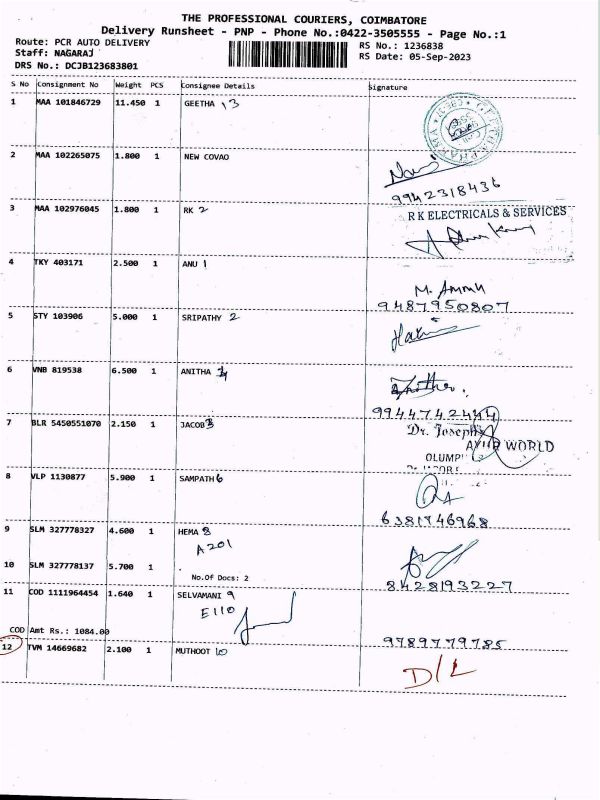 THE PROFESSIONAL COURIERS, COIMBATORE
Delivery Runsheet - PNP - Phone No.:0422-3505555 - Page No.:1
Route: PCR AUTO DELIVERY RS No.: 1236838
Staff: NAGARAJ RS Date: 05-Sep-2023
DRS No.: DCJB123683801
S No Consignment No Weight PCS Consignee Details Signature
1 MAA 101846729 11.450 1 GEETHA 13
2 MAA 102265075 1.800 1 NEW COVAO
9942318436
3 MAA 102976045 1.800 1 RK 2 R K ELECTRICALS & SERVICES
4 TKY 403171 2.500 1 ANU 1
M. Ammu
9487950807
5 STY 103906 5.000 1 SRIPATHY 2
6 VNB 819538 6.500 1 ANITHA
9944742444
7 BLR 5450551070 2.150 1 JACOB 3 Dr. Joseph
AYUR WORLD
8 VLP 1130877 5.900 1 SAMPATH 6
6381746968
9 SLM 327778327 4.600 1 HEMA 8
A201
10 SLM 327778137 5.700 1
No.Of Docs: 2
8428193227
11 COD 1111964454 1.640 1 SELVAMANI 9
E110
COD Amt Rs.: 1084.00 9789779785
12 TVM 14669682 2.100 1 MUTHOOT 10
D/L